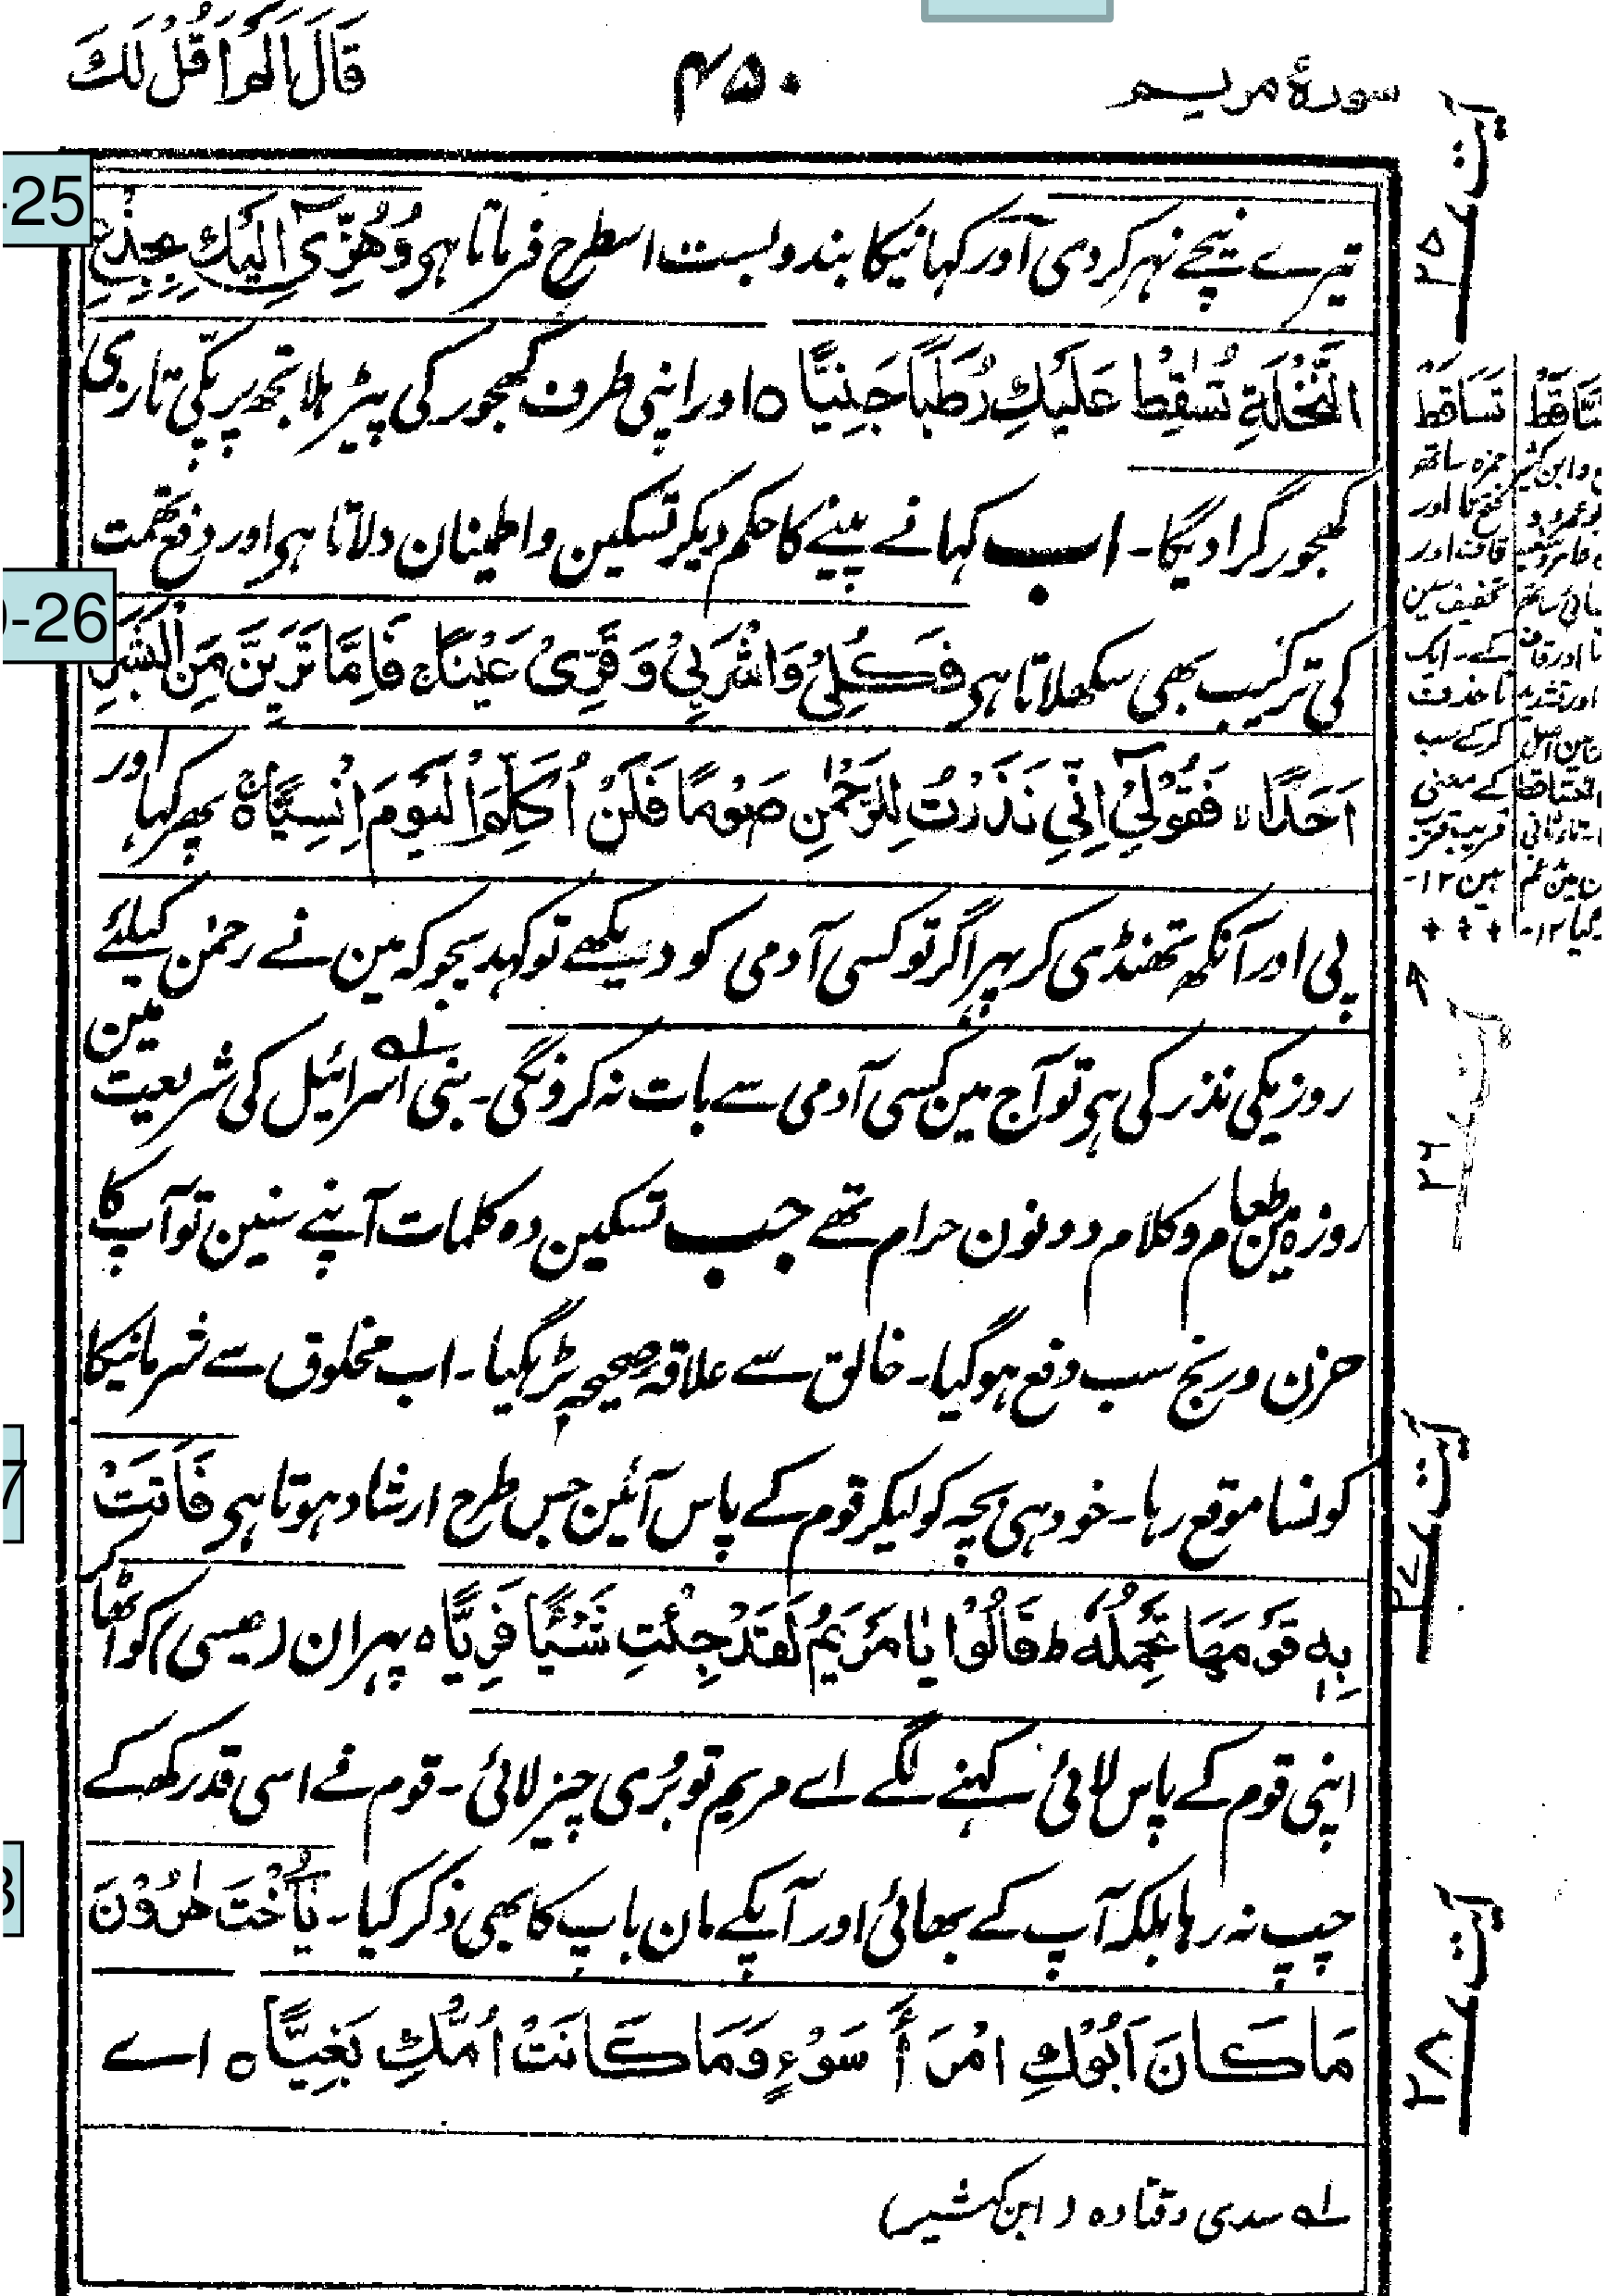 سورۂ مریم
۴۵۰
قَالَ اَلَمْ اَقُلْ لَكَ
-25
تیرے نیچے نہر کردی آور کہا نیکا بندوبست اسطرح فرماتا ہی وَهُزِّيْٓ اِلَيْكِ بِجِذْعِ
النَّخْلَةِ تُسٰقِطْ عَلَيْكِ رُطَبًا جَنِيًّا ہ اور اپنی طرف کھجور کی پیڑ ہلا تجھ پر پکّی تاری
کھجور گرا دیگا۔ اب کہانے پینے کا حکم دیکر تسکین و اطمینان دلاتا ہی اور دفع تہمت
-26
کی ترکیب بھی سکھلاتا ہی فَكُلِيْ وَاشْرَبِيْ وَقَرِّيْ عَيْنًا ج فَاِمَّا تَرَيِنَّ مِنَ الْبَشَرِ
اَحَدًا لا فَقُوْلِيْٓ اِنِّيْ نَذَرْتُ لِلرَّحْمٰنِ صَوْمًا فَلَنْ اُكَلِّمَ الْيَوْمَ اِنْسِيًّا ج ہ پھر کہا اور
پی اور آنکھ تھنڈی کر پہر اگر تو کسی آدمی کو دیکھے تو کہدیجو کہ مین نے رحمٰن کیلئے
روزیکی نذر کی ہی تو آج مین کسی آدمی سے بات نہ کرونگی۔ بنی اسرائیل کی شریعت مین
روزہ مین طعام و کلام دونون حرام تھے جب تسکین دہ کلمات آپنے سنین تو آپ کا
حزن و رنج سب دفع ہوگیا۔ خالق سے علاقۂ صحیحہ پڑ گیا۔ اب مخلوق سے شرمانیکا
کونسا موقع رہا۔ خود ہی بچہ کو لیکر قوم کے پاس آئین جس طرح ارشاد ہوتا ہی فَاَتَتْ
7
بِهٖ قَوْمَهَا تَحْمِلُهٗ ط قَالُوْا يٰا مَرْيَمُ لَقَدْ جِئْتِ شَيْئًا فَرِيًّا ہ پہر ان (عیسی) کو اٹھا کر
اپنی قوم کے پاس لائی کہنے لگے اے مریم تو بُری چیز لائی۔ قوم نے اسی قدر رکھ کے
چپ نہ رہا بلکہ آپ کے بھائی اور آپکے مان باپ کا بھی ذکر کیا۔ يٰٓاُخْتَ هٰرُوْنَ
مَا كَانَ اَبُوْكِ امْرَ أَ سَوْءٍ وَّمَا كَانَتْ اُمُّكِ بَغِيًّا ہ اے
لہ سدی و قتادہ (ابن کثیر)
آیت ۲۵
تَسَاقَطْ
حمزہ ساتھ
فتح تا اور
قاف اور
تخفیف سین
کے۔ ایک
تا حذف
کرکے سب
کے معنی
قریب قریب
ہین ۱۲-
آیت ۲۶
آیت ۲۷
آیت ۲۸